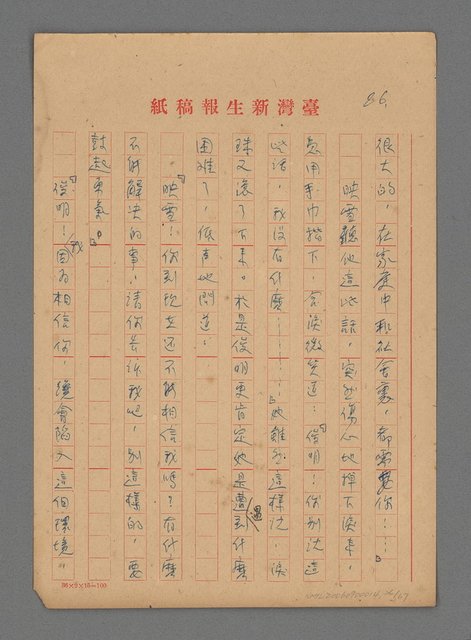 臺灣新生報稿紙
86.
很大的,在家庭中和社會裏,都需要你!……」
映雪聽他這些話,突然傷心地掉下淚來,
急用手巾揩下,含淚微笑道:「俊明!你別說這
些話,我沒有什麼………」她雖然這樣說,淚
珠又滾了下來。於是俊明更肯定她是遭遇到什麼
困難了,低聲地問道:
「映雪!你到現在還不能相信我嗎?有什麼
不能解決的事,請你告訴我吧,別這樣的,要
鼓起勇氣。」
「俊明!我因為相信你,纔會陷入這個環境。